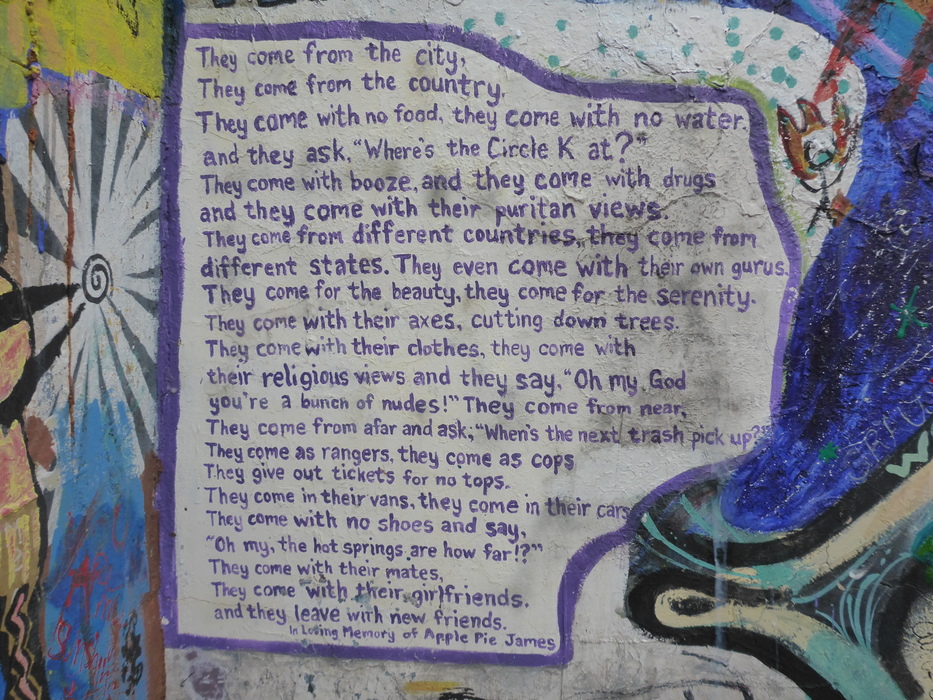 They come from the city,
They come from the country,
They come with no food, they come with no water.
and they ask, "Where's the Circle K at?"
They come with booze, and they come with drugs
and they come with their puritan views.
They come from different countries, they come from
different states. They even come with their own gurus.
They come for the beauty, they come for the serenity.
They come with their axes, cutting down trees.
They come with their clothes, they come with
their religious views and they say, "Oh my, God
you're a bunch of nudes!" They come from near,
They come from afar and ask, "When's the next trash pick up?"
They come as rangers, they come as cops
They give out tickets for no tops.
They come in their vans, they come in their cars
They come with no shoes and say,
"Oh my, the hot springs are how far!?"
They come with their mates,
They come with their girlfriends.
and they leave with new friends.
In Loving Memory of Apple Pie James